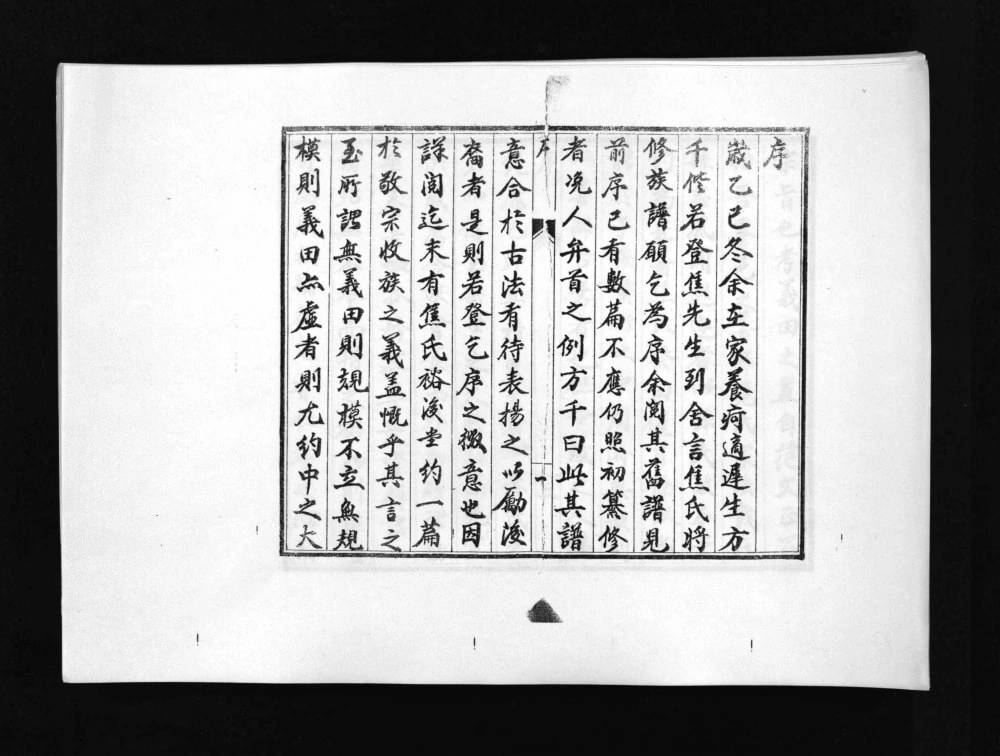 序
歲乙巳冬余在家養疴適遲生方
千偕若登焦先生到舍言焦氏將
修族譜願乞為序余閱其舊譜見
前序已有數篇不應仍照初纂修
者浼人弁首之例方千曰此其譜
序
一
意合於古法有待表揚之以勵後
裔者是則若登乞序之微意也因
詳閱迄末有焦氏裕後堂約一篇
於敬宗收族之義盖慨乎其言之
至所謂無義田則規模不立無規
模則義田亦虛者則尤約中之大